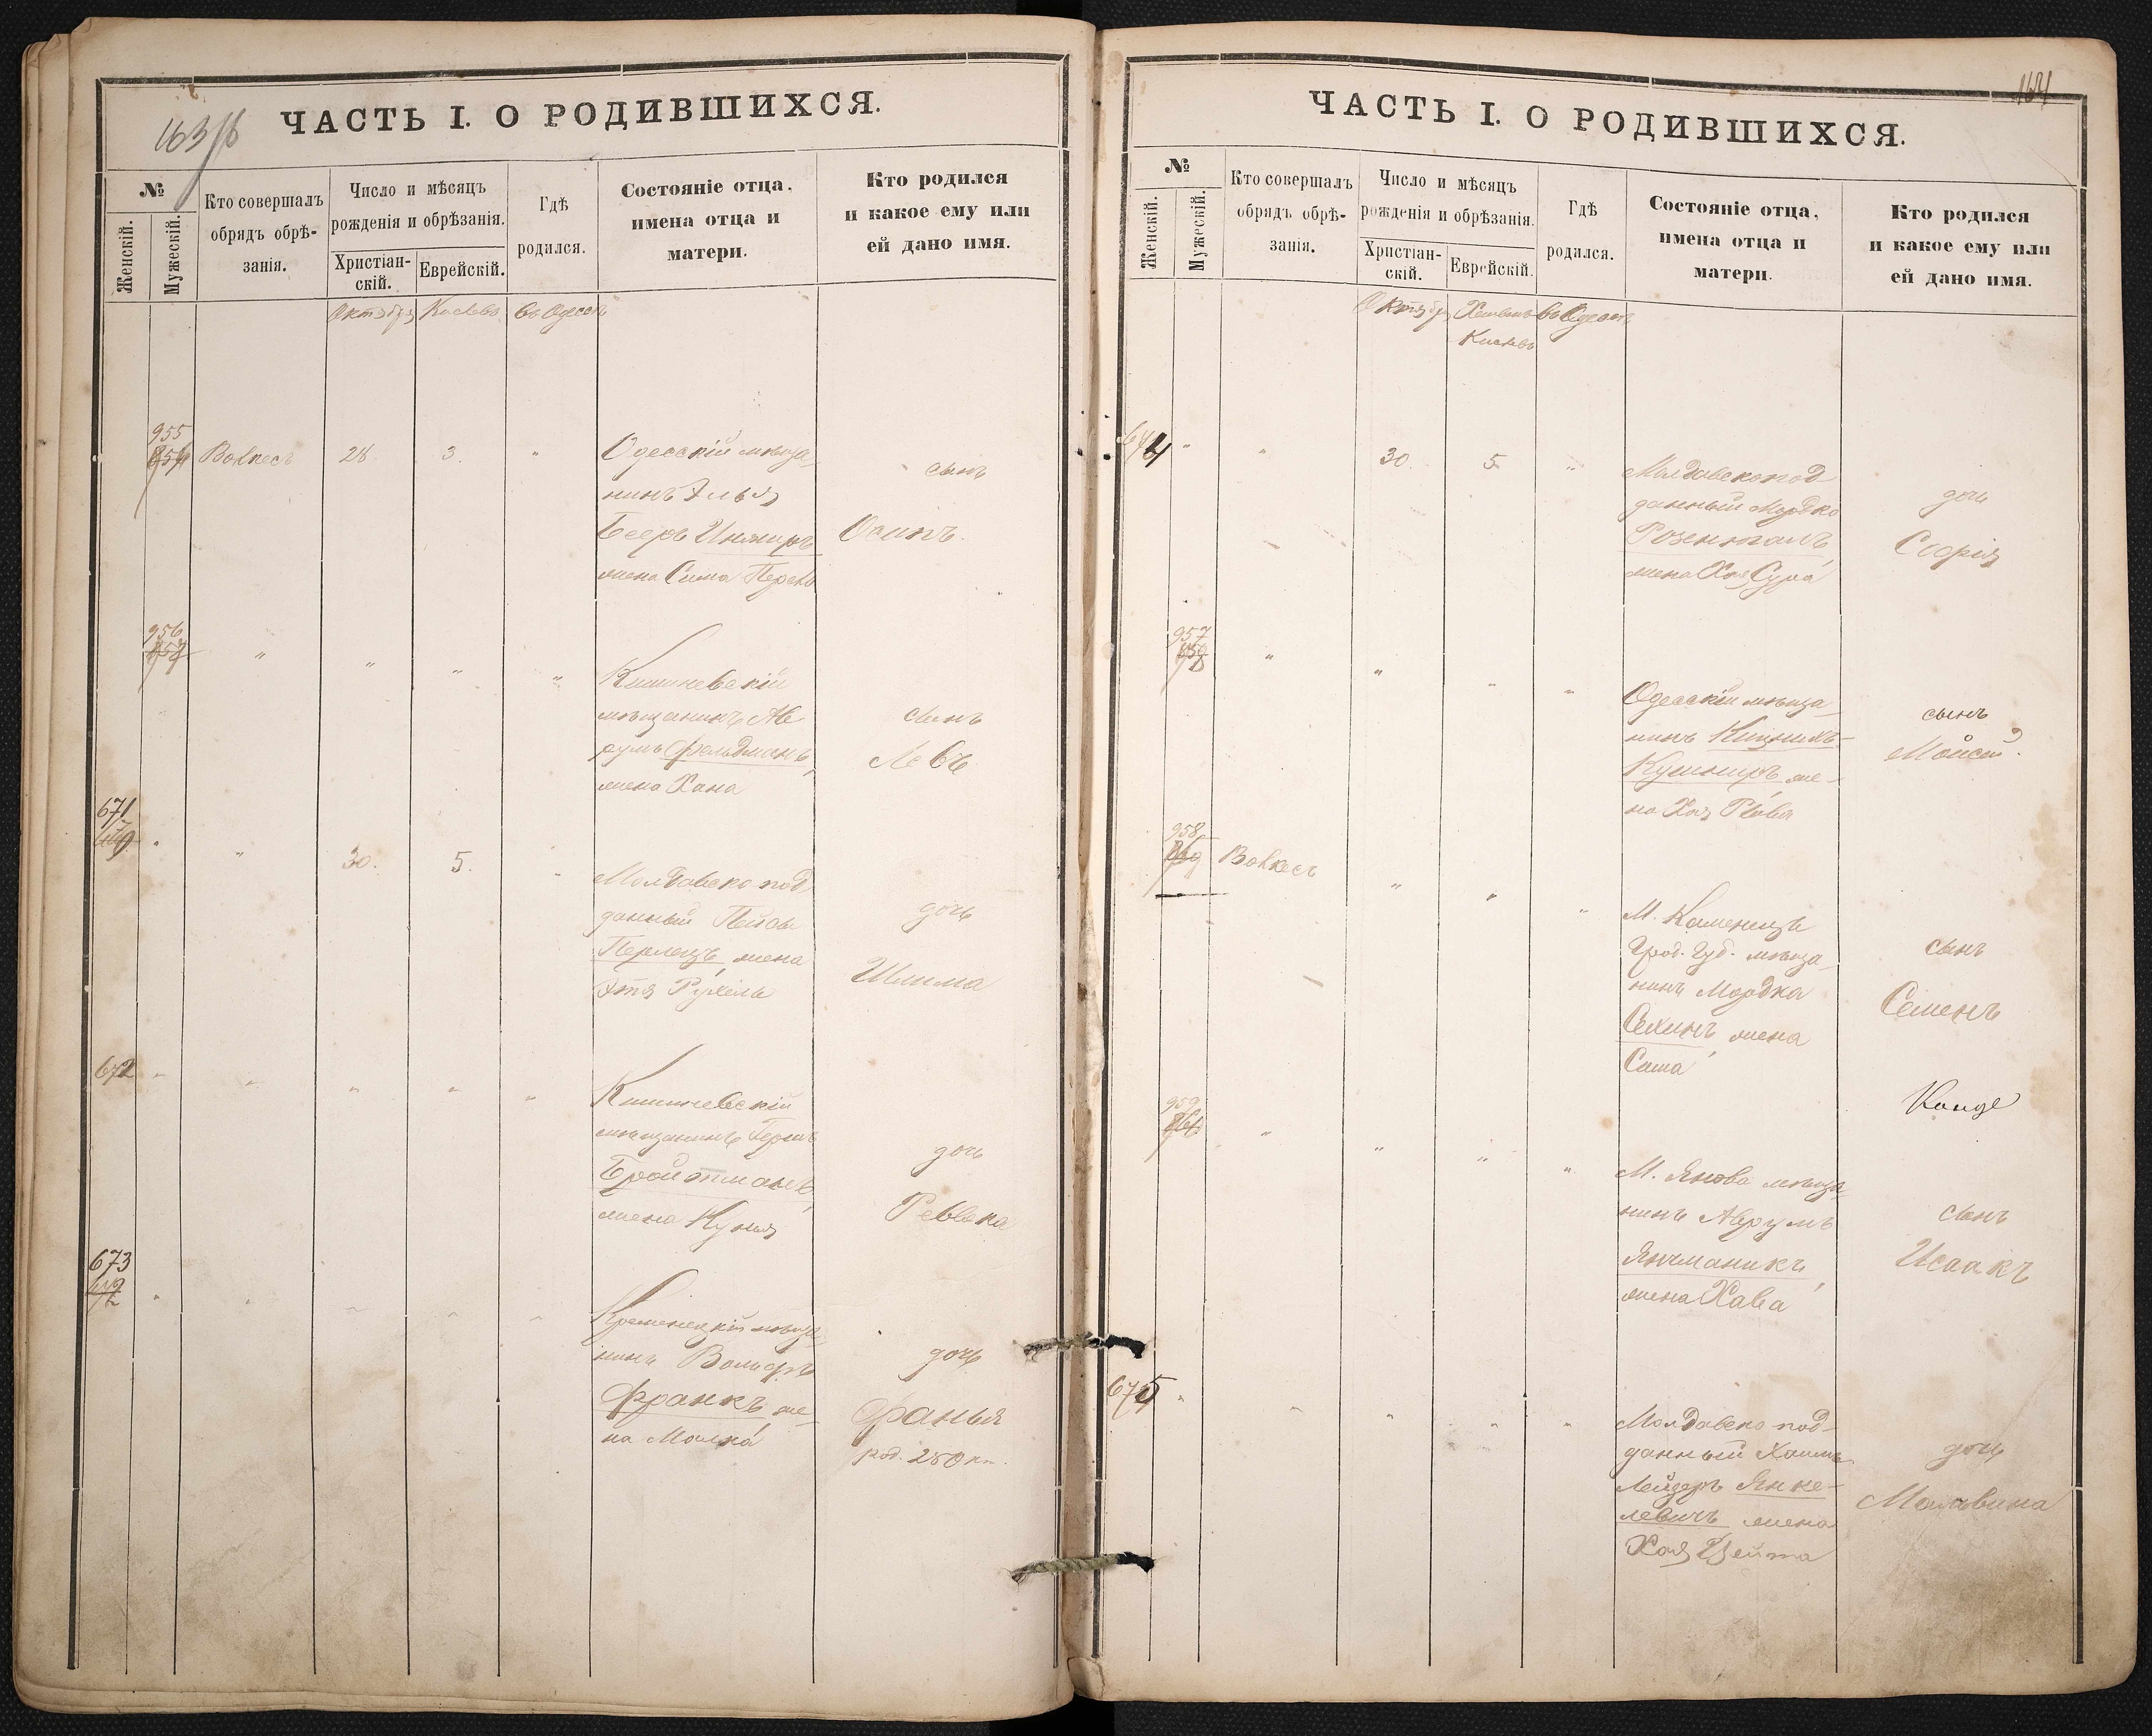 163
ЧАСТЬ I. О РОДИВШИХСЯ.
№
Женскій.
Мужескій.
Кто совершалъ
обрядъ обрѣ-
занія.
Число и мѣсяцъ
рожденія и обрѣзанія.
Христіан-
скій.
Еврейскій.
Гдѣ
родился.
Состояніе отца,
имена отца и
матери.
Кто родился
и какое ему или
ей дано имя.
Октября Кислевъ въ Одессѣ
955
Волкесъ 28 3. "
Одесскій мѣща-
нинъ Элья
Бееръ
жена Сима Перель
сынъ
Осипъ.
956
" " " "
Кишиневскій
мѣщанинъ Ав
румъ Фельдманъ,
жена Хана
сынъ
Левъ
671
" " 30. 5. "
Молдавско под
данный
жена
Этя Рухель
дочь
672 " " " " "
Кишиневскій
мѣщанинъ Герш
Бройтманъ,
жена Куня
дочь
Ревека
673
" " " " "
Кременецкій мѣща-
нинъ Вольфъ
Франкъ, же-
на Малка
дочь
Фанья
род. 250 кп.
164
ЧАСТЬ I. О РОДИВШИХСЯ.
№
Женскій.
Мужескій.
Кто совершалъ
обрядъ обрѣ-
занія.
Число и мѣсяцъ
рожденія и обрѣзанія.
Христіан-
скій.
Еврейскій.
Гдѣ
родился.
Состояніе отца,
имена отца и
матери.
Кто родился
и какое ему или
ей дано имя.
Октября въ Одессѣ
Кислевъ
" " 30. 5 "
Молдавскопод
данный Мордко
Розенталь,
жена Хая Сура
дочь
Софія
957
" " " "
Одесскій мѣща-
нинъ
Кушниръ, же-
на Хая
сынъ
Мойсей.
958
Волкесъ " " "
М. Каменица
Грод. Губ. мѣща-
нинъ Мордка
жена
Сима
сынъ
Семенъ
959
" " " "
М. Янова мѣща-
нинъ Аврумъ
жена Хава
сынъ
Исаакъ
675 " " " " "
Молдавско под-
данный Хаимъ
Лейзеръ Янке-
левичъ жена
Хая Цейта
дочь
Мальвина